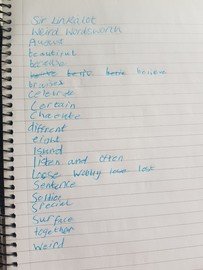 Sir Linkalot
Weird Wordsworth
August
beautiful
beachie
believe
bruises
Celebrate
Certain
Chocolate
different
eight
Island
listen and often
Loose Wobbly love lost
Sentence
Soldier
Special
Surface
together
Weird